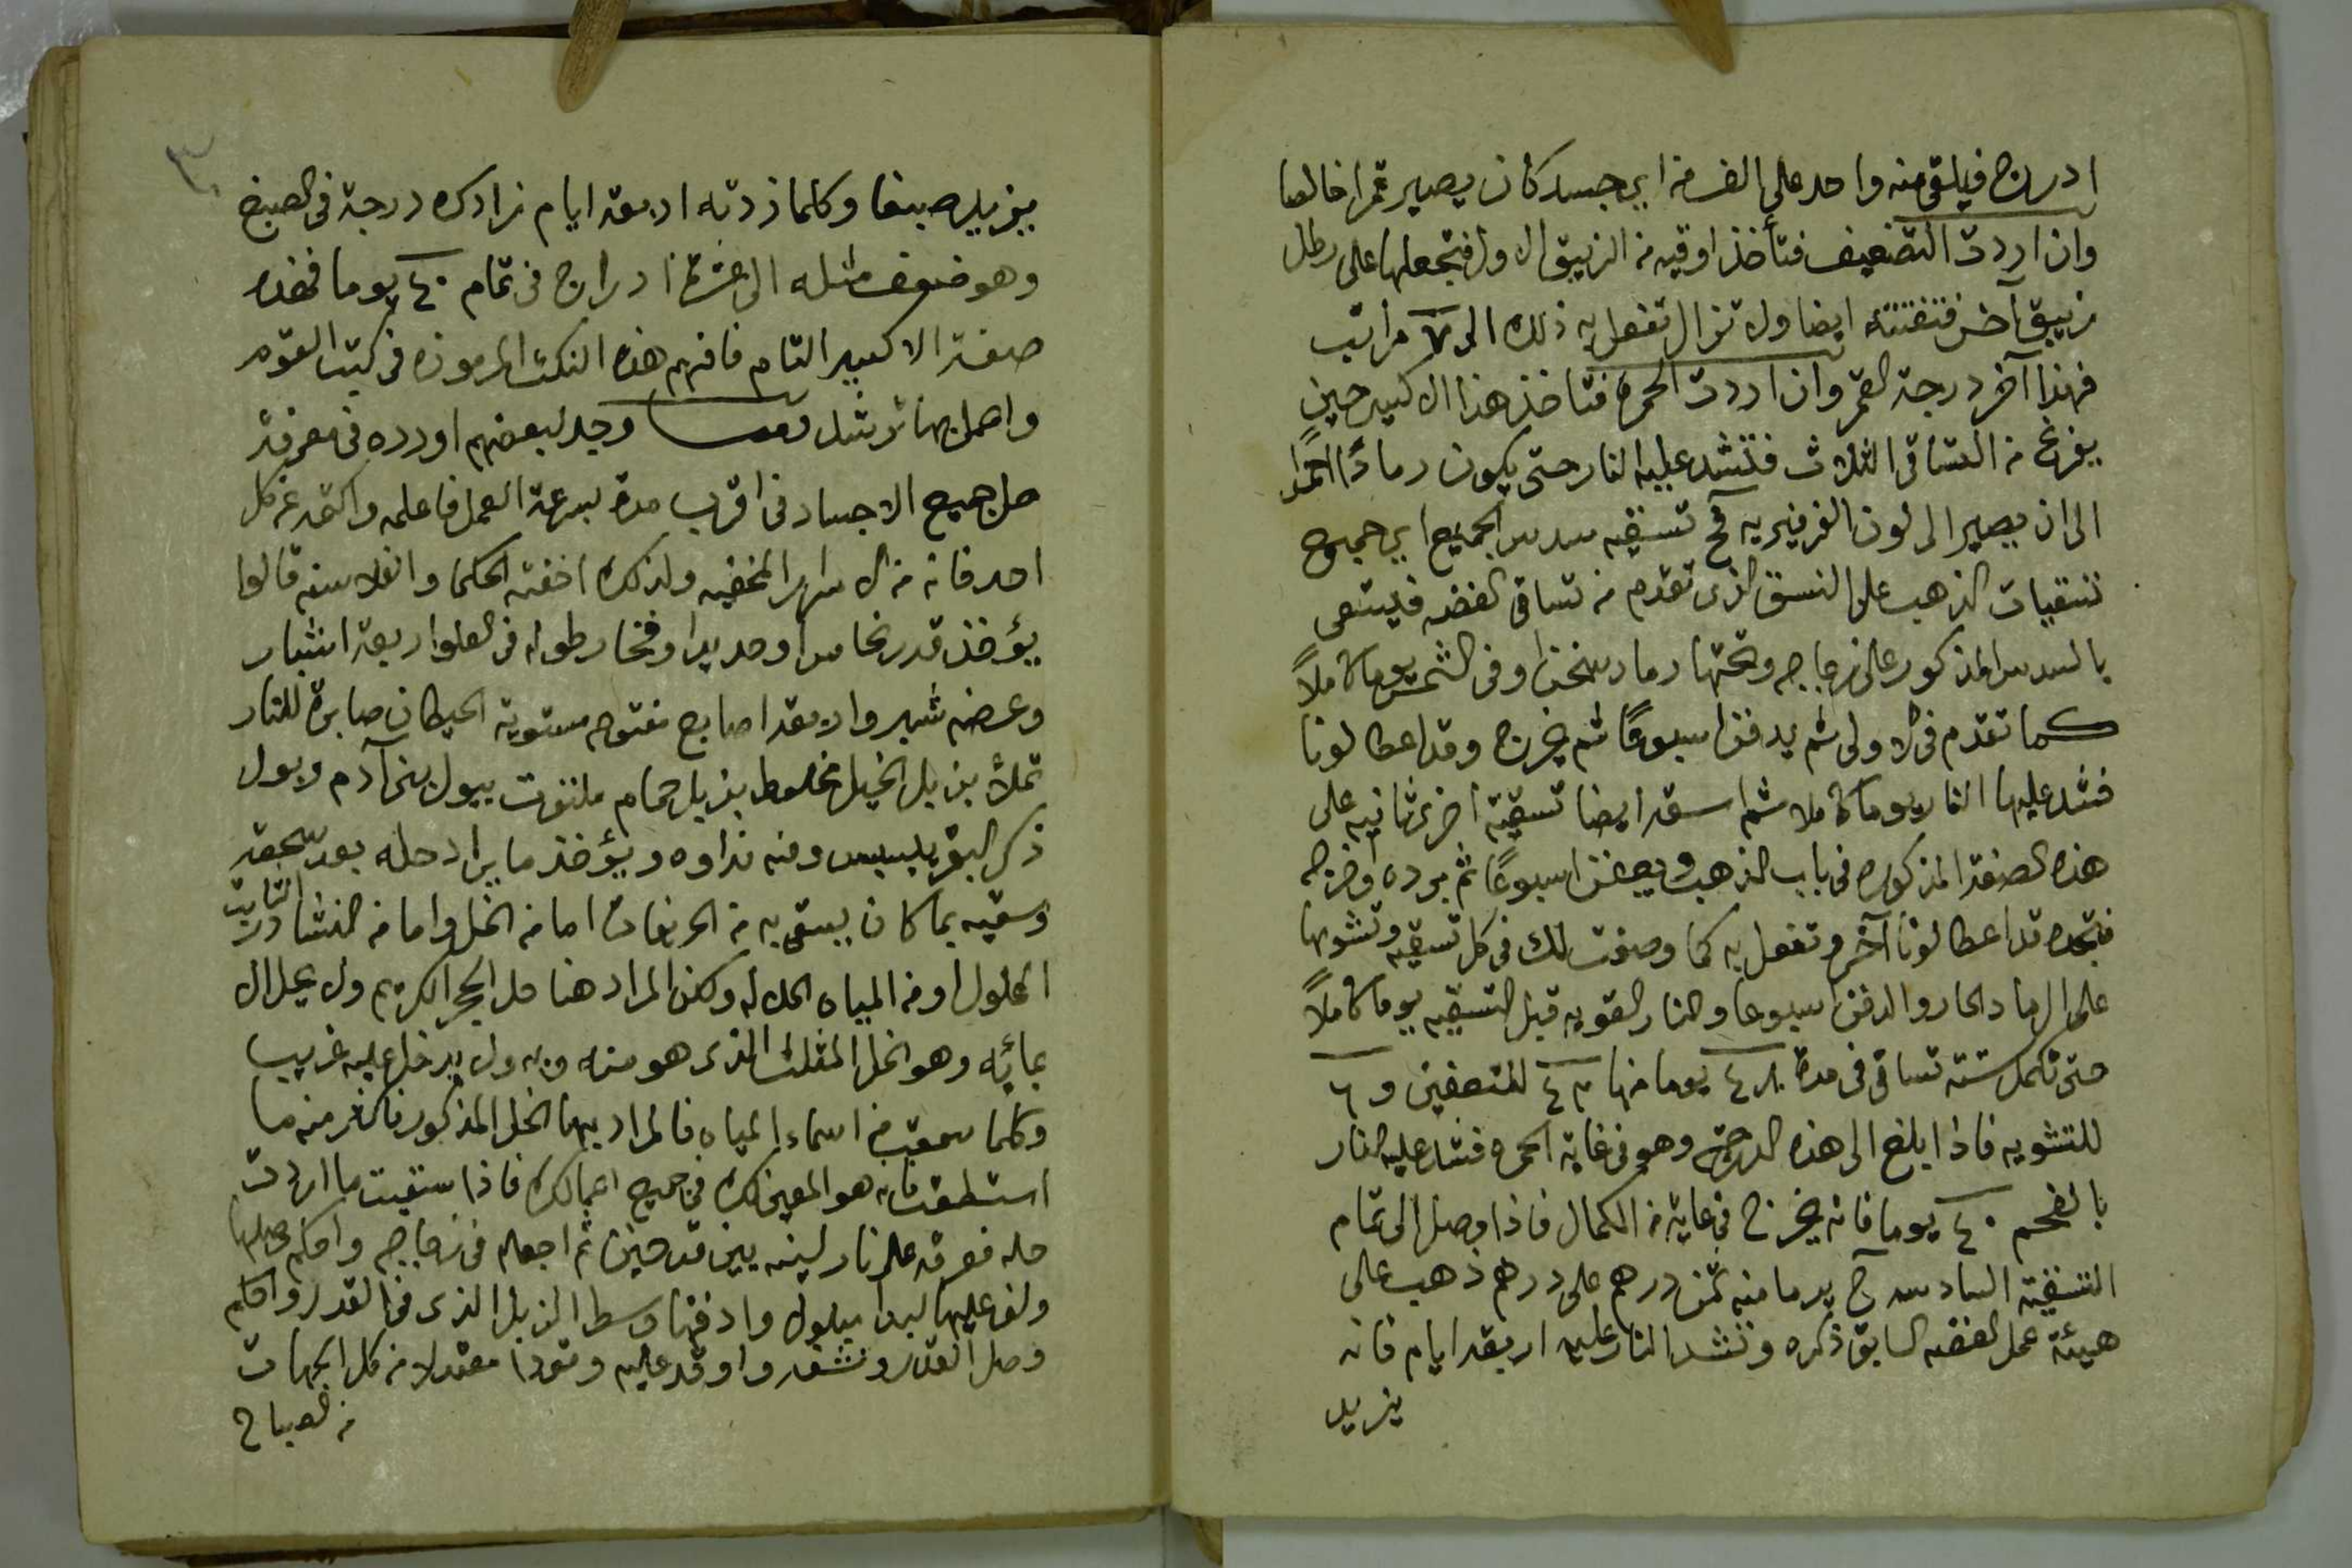 ادراج فيلقى منه واحد على الف من اي جسد كان يصير قمرا خالصا
وان اردت التضعيف فتأخذ اوقيه من الزيبق الاول فتجعلها على رطل
زيبق آخر فتفتته ايضا ولا تزال تفعل به ذلك الى ٧ مراتب
فهذا آخر درجة القمر وان اردت الحمرة فتاخذ هذا الاكسير حين
يفرغ من التساقى الثلاث فتشد عليه النار حتى يكون رمادًا احمرا
الى ان يصير الى لون الفرفيريه فح تسقيه سدس الجميع اي جميع
تسقيات الذهب على النسق الذى تقدم من تساقى الفضه فيسقى
بالسدس المذكور على زجاجه وتحتها رماد سخن او فى الشمس يوما كاملاً
كما تقدم فى الاولى ثم يدفن اسبوعًا ثم يخرج وقد اعطا لونا
فشد عليها النار يوما كاملا ثم اسقه ايضا تسقية اخرى ثانيه على
هذه الصفة المذكوره فى باب الذهب ويعفن اسبوعًا ثم برده واخرجه
فتجده قد اعطا لونا آخر وتفعل به كما وصفت لك فى كل تسقيه وتشويها
على الرماد الحار والدفن اسبوعا والنار القويه قبل التسقيه يوما كاملاً
حتى تكمل سته تساقى فى مدة ٤٨ يوما منها ٤٢ للتعفين و ٦
للتشويه فاذا ابلغ الى هذه الدرجة وهو فى غاية الحمره فشد عليه النار
بالفحم ٤٠ يوما فانه يخرج فى غاية من الكمال فاذا وصل الى تمام
التسقية السادسه ح يرما منه ثمن درهم على درهم ذهب على
هيئة عمل الفضه السابق ذكره وتشد النار عليه اربعة ايام فانه
يزيد
يزيد صبغا وكلما زدته اربعة ايام زادك درجة فى الصبغ
وهو ضعف مثله الى عشرة ادراج فى تمام ٤٠ يوما فهذه
صفة الاكسير التام فافهم هذه النكت المرموزه فى كتب القوم
واعمل بها ترشد وجد لبعضهم اورده فى معرفة
حل جميع الاجساد فى اقرب مدة بسرعة العمل فاعلمه واكتمه عن كل
احد فانه من الاسرار المخفيه ولذلك اخفته الحكما والفلاسفه قالوا
يؤخذ قدر نحاسا او حديدا او فخار طوله فى العلو اربعة اشبار
وعرضه شبر واربعة اصابع مفتوحه مستوية الحيطان صابرة للنار
تملأ بزبل الخيل مخلوط بزبل حمام ملتوت ببول بنى آدم وبول
ذكر البقر يلبس ومنه نداوه ويؤخذ ما يراد حله بعد سحقه
وسقيه بما كان يسقى به من الحريفات اما من الخل واما من النشادر الثابت
المحلول او من المياه الحلاله ولكن المراد هنا حل الحجر الكريم ولا يحل الا
بمائه وهو الخل المثلث الذى هو منه وبه ولا يدخل عليه غريب
وكلما سمعت من اسماء المياه فالمراد بها الخل المذكور فاكثر منه ما
استطعت فانه هو المعين لك فى جميع اعمالك فاذا سقيت ما اردت
حله فعرقه على نار لينه بين قدحين ثم اجعله فى زجاجه واحكم وصلها
ولف عليها لبدا مبلولا وادفنها وسط الزبل الذى فى القدر واحكم
وصل القدر ونشفه واوقد عليه وقودا معتدلا من كل الجهات
من الصباح